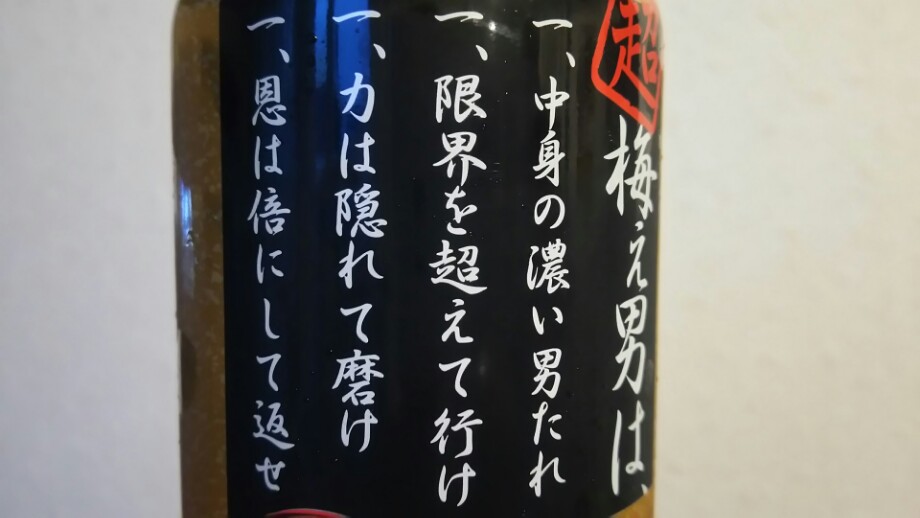 超梅え男は、
一、中身の濃い男たれ
一、限界を超えて行け
一、力は隠れて磨け
一、恩は倍にして返せ